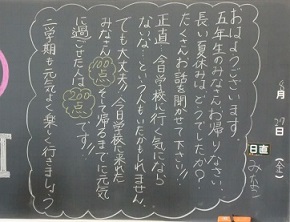 おはようございます!
五年生のみなさんお帰りなさい。
長い夏休みはどうでしたか?
たくさんお話を聞かせて下さい!!
正直、今日学校に行く気になら
ないな、という人もいたかもしれません。
でも大丈夫!! 今日学校に来れた
みなさん100点 そして帰るまでに元気
に過ごせた人は200点です!!
二学期も元気よく楽しく行きましょう
8月27日(金)
日直